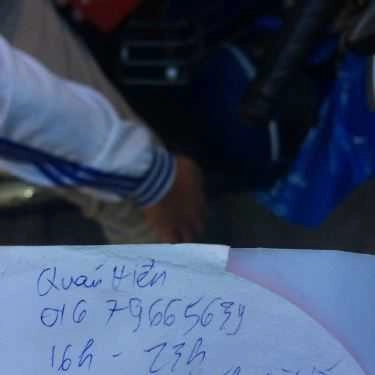 Quán Hiền
016 79665639
16h - 23h